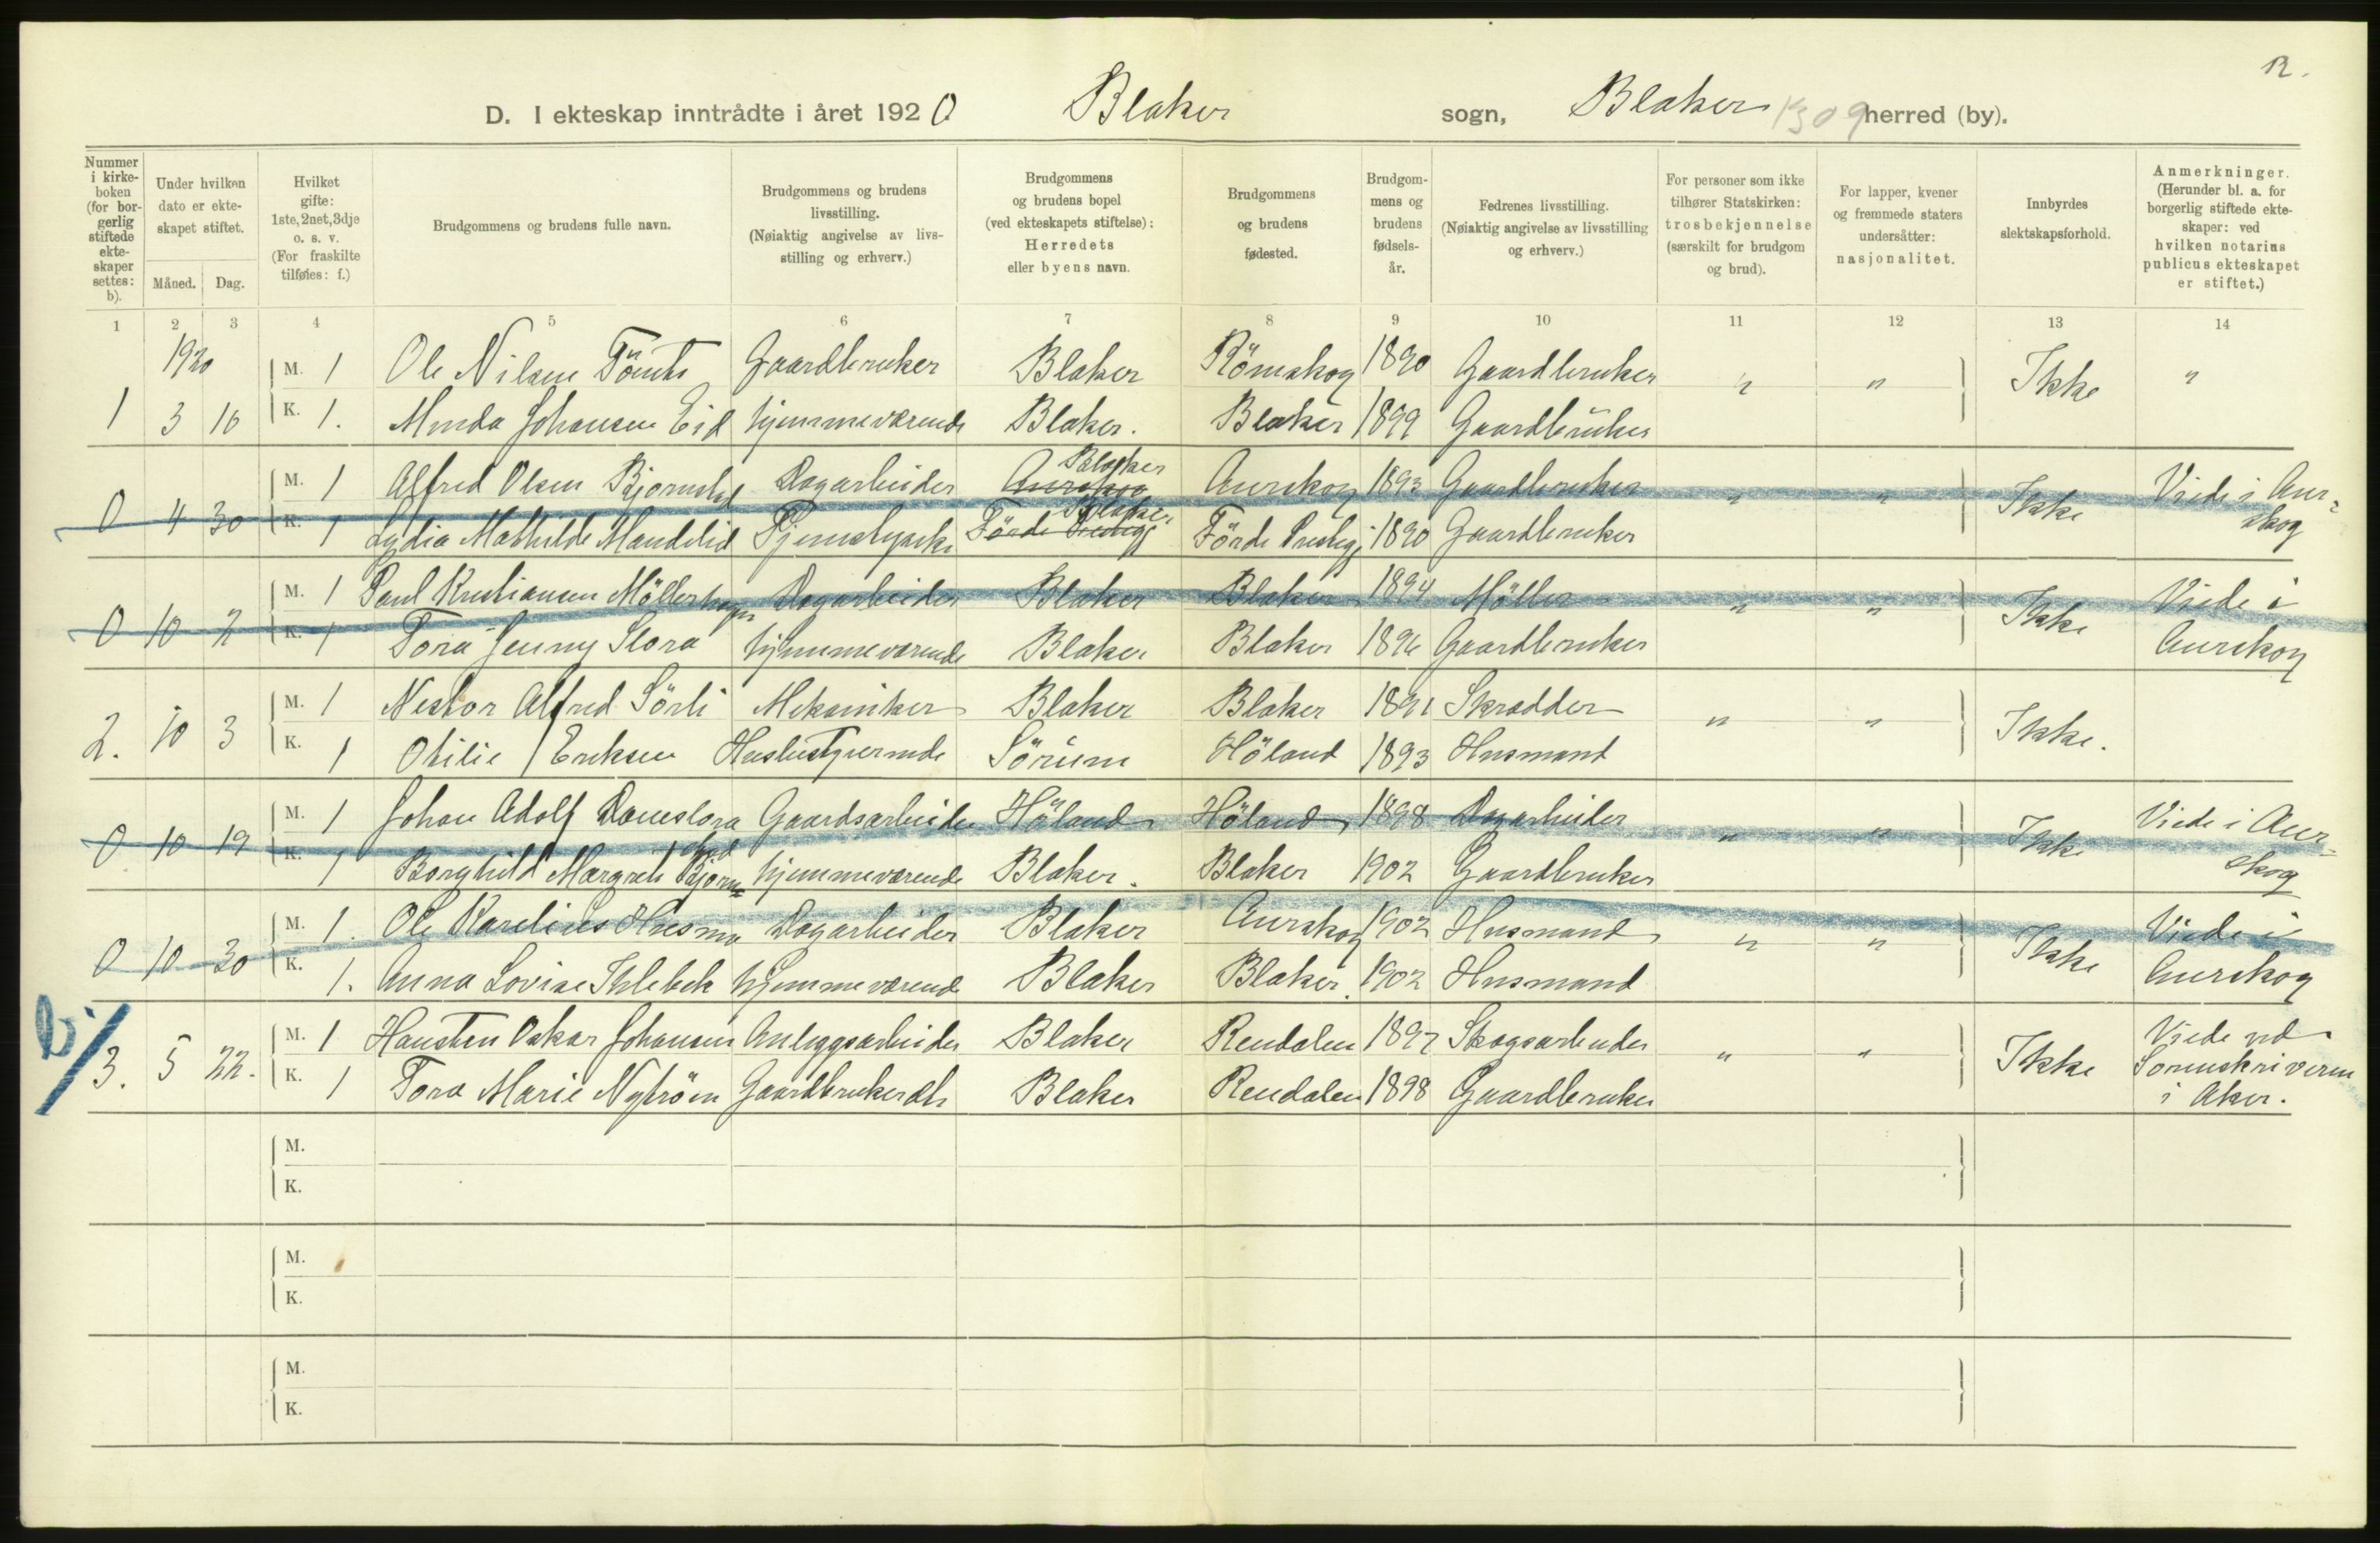 12.
D. I ekteskap inntrådte i året 1920 Blaker sogn, Blaker 1309 herred (by).
Nummer i kirkeboken (for borgerlig stiftede ekteskaper settes: b).
Under hvilken dato er ekteskapet stiftet.
Måned. Dag.
Hvilket gifte: 1ste, 2net, 3dje o. s. v. (For fraskilte tilføies: f.)
Brudgommens og brudens fulle navn.
Brudgommens og brudens livsstilling. (Nøiaktig angivelse av livsstilling og erhverv.)
Brudgommens og brudens bopel (ved ekteskapets stiftelse): Herredets eller byens navn.
Brudgommens og brudens fødested.
Brudgommens og brudens fødselsår.
Fedrenes livsstilling. (Nøiaktig angivelse av livsstilling og erhverv.)
For personer som ikke tilhører Statskirken: trosbekjennelse (særskilt for brudgom og brud).
For lapper, kvener og fremmede staters undersåtter: nasjonalitet.
Innbyrdes slektskapsforhold.
Anmerkninger. (Herunder bl. a. for borgerlig stiftede ekteskaper: ved hvilken notarius publicus ekteskapet er stiftet.)
1 2 3 4 5 6 7 8 9 10 11 12 13 14
1920 M. 1 Ole Nilsen Gaardbruker Blaker Römskog 1890 Gaardbruker " " Ikke "
1 3 16 K. 1. Minda Johansen Eid hjemmeværende Blaker. Blaker 1899 Gaardbruker
M. 1 Alfred Olsen Bjornstad Dagarbeider Aurskog Blaker Aurskog 1893 Gaardbruker " " Ikke Viede i Aur-
0 4 30 K. 1 Lydia Mathilde Mandelid Tjenestepike Förde Prestegj Blaker Förde Prestegj. 1890 Gaardbruker skog
M. 1 Paul Kristiansen Möllerhagen Dagarbeider Blaker Blaker 1894 Möller " " Ikke Viede i
0 10 2 K. 1 Tora Jenny Slora hjemmeværende Blaker Blaker 1896 Gaardbruker Aurskog
M. 1 Nestor Alfred Sörli Mekaniker Blaker Blaker 1891 Skrædder " " Ikke.
2. 10 3 K. 1 Otilie Eriksen Husbestyrerinde Sörum Höland 1893 Husmand
M. 1 Johan Adolf Daneslora Gaardsarbeider Höland Höland 1898 Dagarbeider " " Ikke Viede i Aur-
0 10 19 K. 1 Borghild Margrete Bjornstad hjemmeværende Blaker. Blaker 1902 Gaardbruker skog
M. 1. Ole Karelius Husmo Dagarbeider Blaker Aurskog 1902 Husmand " " Ikke Viede i
0 10 30 K. 1. Anna Lovise Ihlebek hjemmeværende Blaker Blaker. 1902 Husmand Aurskog
b. M. 1 Hansten Oskar Johansen Anleggsarbeider Blaker Rendalen 1897 Skogsarbeider " " Ikke Viede ved
3. 5 22. K. 1 Tora Marie Nyström Gaardbrukerdtr Blaker Rendalen 1898 Gaardbruker Sorenskriveren
i Aker.
M.
K.
M.
K.
M.
K.